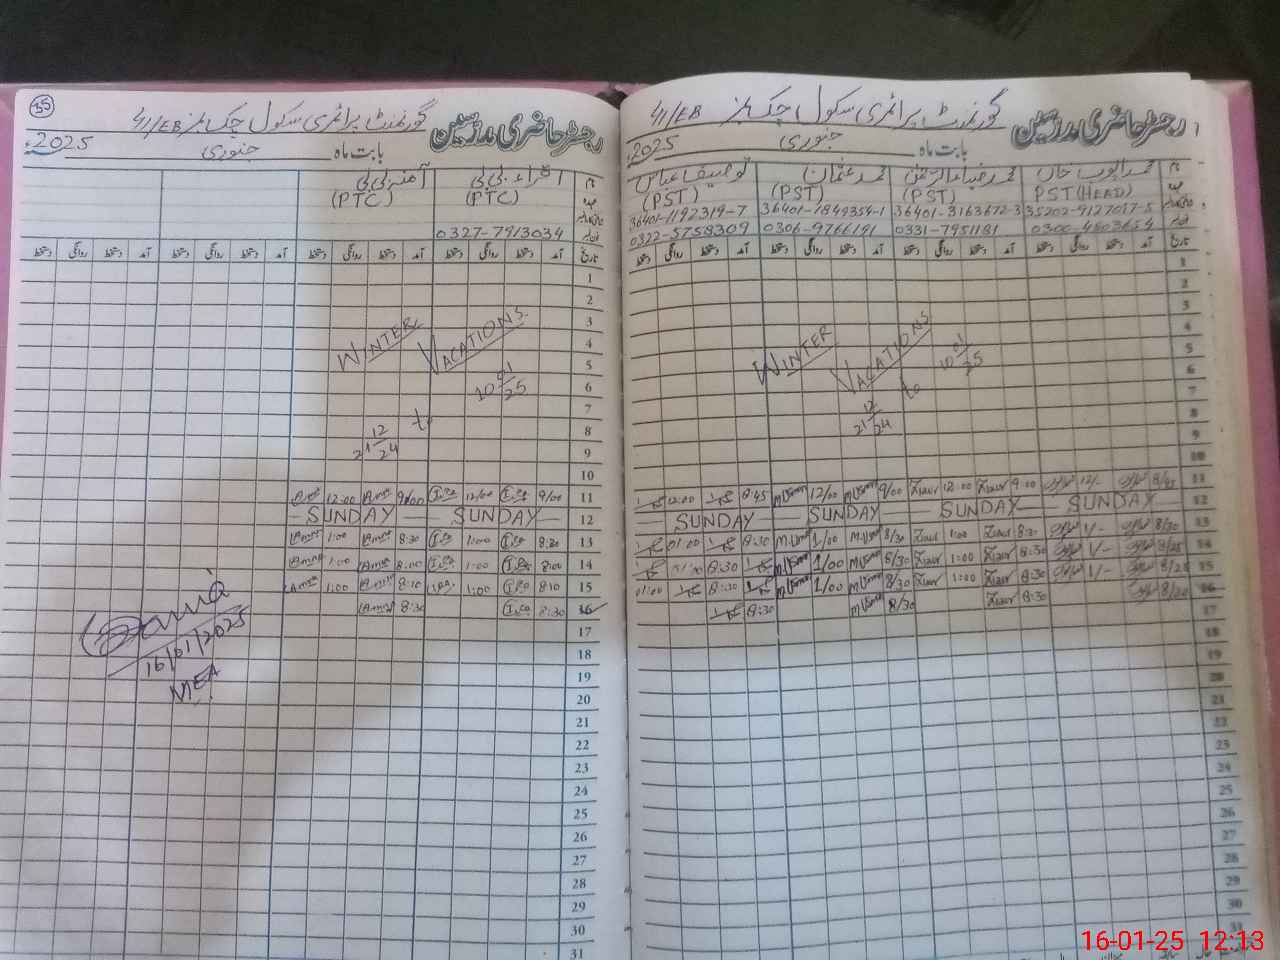 35
رجسٹر حاضری مدرسین گورنمنٹ پرائمری سکول چک نمبر 41/EB
بابت ماہ جنوری 2025ء
اقراء بی بی آمنہ بی بی
(PTC) (PTC)
0327-7913034
تاریخ آمد دستخط روانگی دستخط آمد دستخط روانگی دستخط آمد دستخط روانگی دستخط آمد دستخط روانگی دستخط
1
2
3
4
5
6
7
8
9
10
WINTER VACATIONS
21 12/24 to 10 01/25
11 9/00 12/00 9/00 12:00
12 SUNDAY SUNDAY
13 8:30 1:00 8:30 1:00
14 8:00 1:00 8:00 1:00
15 8:10 1:00 8:10 1:00
16 8:30 8:30
17
18
19
20
21
22
23
24
25
26
27
28
29
30
31
16/01/2025
MEA
رجسٹر حاضری مدرسین گورنمنٹ پرائمری سکول چک نمبر 41/EB
بابت ماہ جنوری 2025ء
محمد ایوب خان محمد ضیاء الرحمن محمد عثمان توصیف عباس
PST (HEAD) (PST) (PST) (PST)
35202-9127017-5 36401-3163672-3 36401-1849354-1 36401-1192319-7
0300-4803654 0331-7951181 0306-9766191 0322-5758309
تاریخ آمد دستخط روانگی دستخط آمد دستخط روانگی دستخط آمد دستخط روانگی دستخط آمد دستخط روانگی دستخط
1
2
3
4
5
6
7
8
9
10
WINTER VACATIONS
21 12/24 to 10 01/25
11 8/45 12/- 9:00 Ziaur 12:00 Ziaur 9/00 M.Usman 12/00 M.Usman 8:45 12:00
12 SUNDAY SUNDAY SUNDAY SUNDAY
13 8/30 1/- 8:30 Ziaur 1:00 Ziaur 8/30 M.Usman 1/00 M.Usman 8:30 01:00
14 8/25 1/- 8:30 Ziaur 1:00 Ziaur 8/30 M.Usman 1/00 M.Usman 8:30 01:00
15 8/25 1/- 8:30 Ziaur 1:00 Ziaur 8/30 M.Usman 1/00 M.Usman 8:30 01:00
16 8/20 8:30 Ziaur 8/30 M.Usman 8:30
17
18
19
20
21
22
23
24
25
26
27
28
29
30
31
16-01-25 12:13